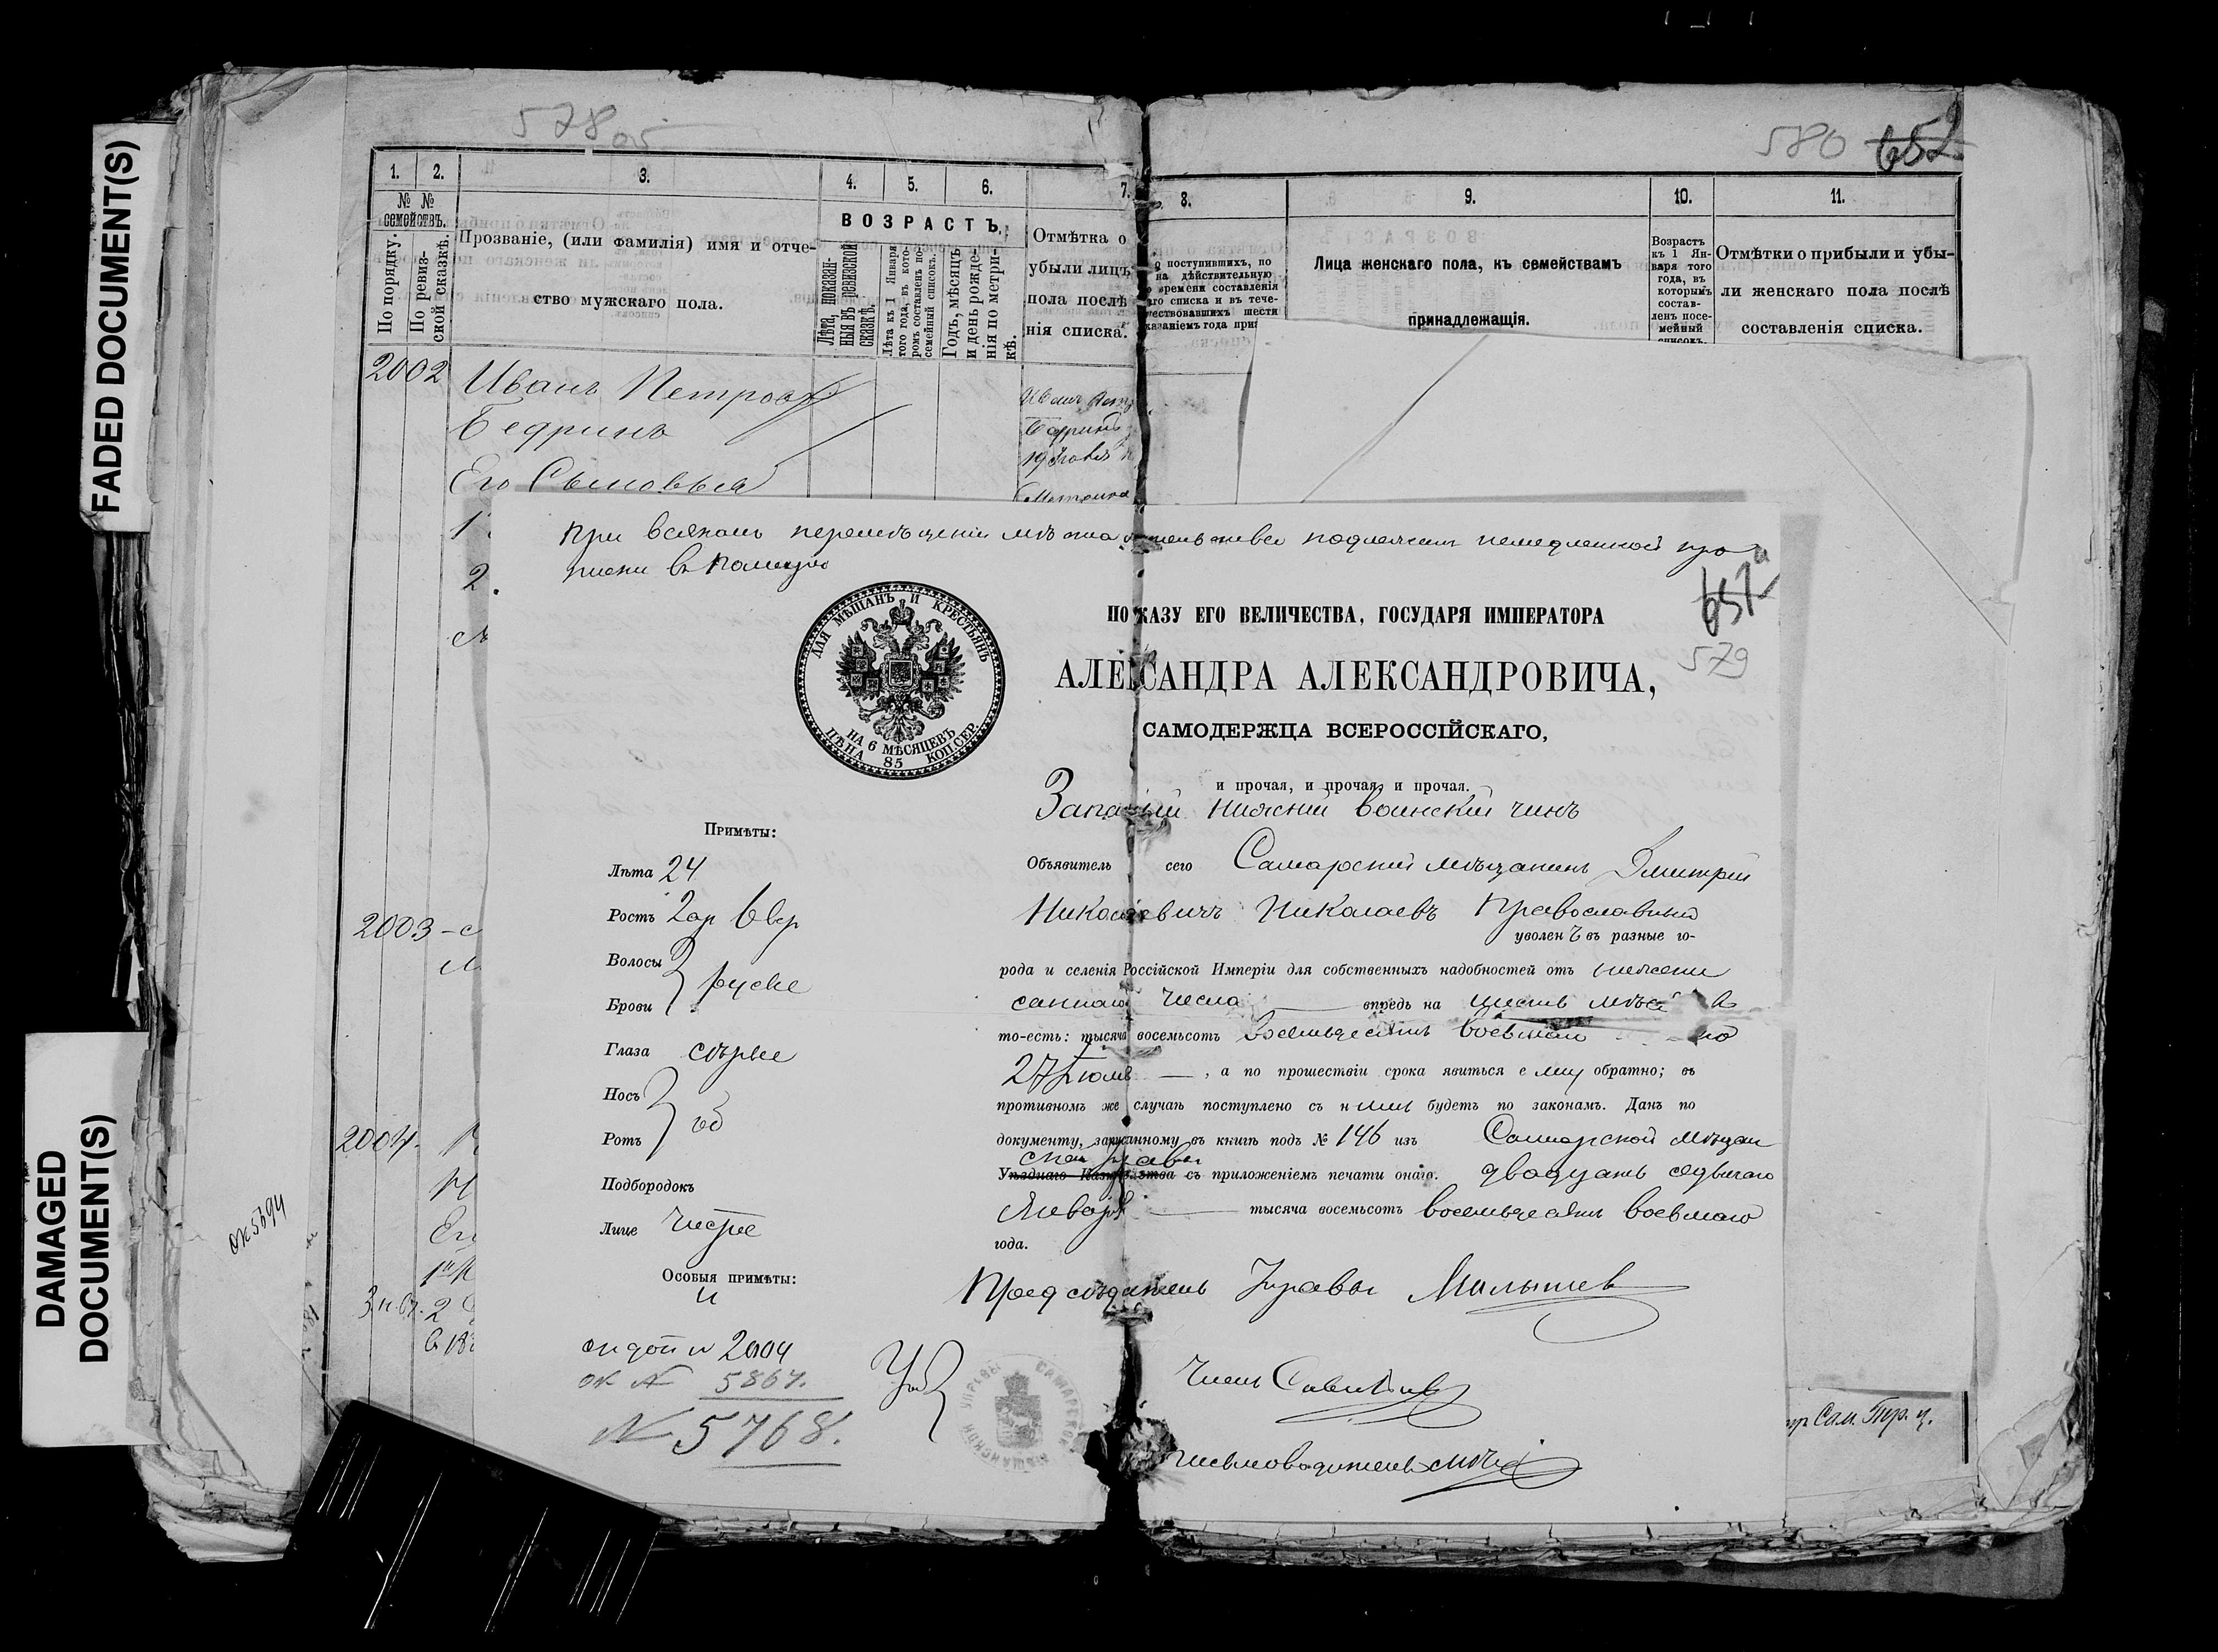 FADED DOCUMENT(S)
DAMAGED
DOCUMENT(S)
57805
580 652
1. 2. 3. 4. 5. 6. 7. 8. 9. 10. 11.
№ №
семействъ.
По порядку.
По ревиз-
ской сказкѣ.
Прозваніе, (или фамилія) имя и отче-
ство мужскаго пола.
ВОЗРАСТЪ.
Лѣта, показан-
ныя въ ревизской
сказкѣ.
Лѣта къ 1 Января
того года, въ кото-
ромъ составленъ по-
семейный списокъ.
Годъ, мѣсяцъ
и день рожде-
нія по метри-
кѣ.
Отмѣтка о
убыли лицъ
пола послѣ
нія списка.
о поступившихъ, по
на дѣйствительную
времени составленія
го списка и въ тече-
шествовавшихъ шести
казаніемъ года при
Лица женскаго пола, къ семействамъ
принадлежащія.
Возрастъ
къ 1 Ян-
варя того
года, въ
которымъ
состав-
ленъ посе-
мейный
списокъ.
Отмѣтки о прибыли и убы-
ли женскаго пола послѣ
составленія списка.
2002 Иванъ Петровъ
Бедринъ
Его Сыновья
1
2.
2003
2004.
ок 5694
При всякомъ перемѣщеніи мѣста жительства подлежитъ немедленной про
писки въ Полиціи
657
579
ДЛЯ МѢЩАНЪ И КРЕСТЬЯНЪ
НА 6 МѢСЯЦЕВЪ
ЦѢНА 85 КОП. СЕР.
ПО УКАЗУ ЕГО ВЕЛИЧЕСТВА, ГОСУДАРЯ ИМПЕРАТОРА
АЛЕКСАНДРА АЛЕКСАНДРОВИЧА,
САМОДЕРЖЦА ВСЕРОССІЙСКАГО,
и прочая, и прочая, и прочая.
Запасный нижній воинскій чинъ
Объявитель сего Самарскій мѣщанинъ Дмитрій
Николаевичъ Николаевъ Православный
уволенъ въ разные го-
рода и селенія Россійской Имперіи для собственныхъ надобностей отъ нижепи
саннаго числа впредь на шесть мѣс
то-есть: тысяча восемьсотъ восемьдесятъ восьмаго по
27 Іюля, а по прошествіи срока явиться ему обратно; въ
противномъ же случаѣ поступлено съ нимъ будетъ по законамъ. Данъ по
документу, записанному въ книгѣ подъ № 146 изъ Самарской Мѣщан
ской Управы
Уѣзднаго Казначейства съ приложеніемъ печати онаго. двадцать седьмаго
Января тысяча восемьсотъ восемьдесятъ восьмаго
года.
Предсѣдатель Управы Малышев
Членъ
Письмоводитель
Примѣты:
Лѣта 24
Ростъ 2 ар 6 вер
Волосы
Брови русые
Глаза сѣрые
Носъ
Ротъ об
Подбородокъ
Лице чистое
Особыя примѣты:
2004
ок № 5867.
№ 5768.
САМАРСКОЙ МѢЩАНСКОЙ УПРАВЫ
Сам. Тир. ц.